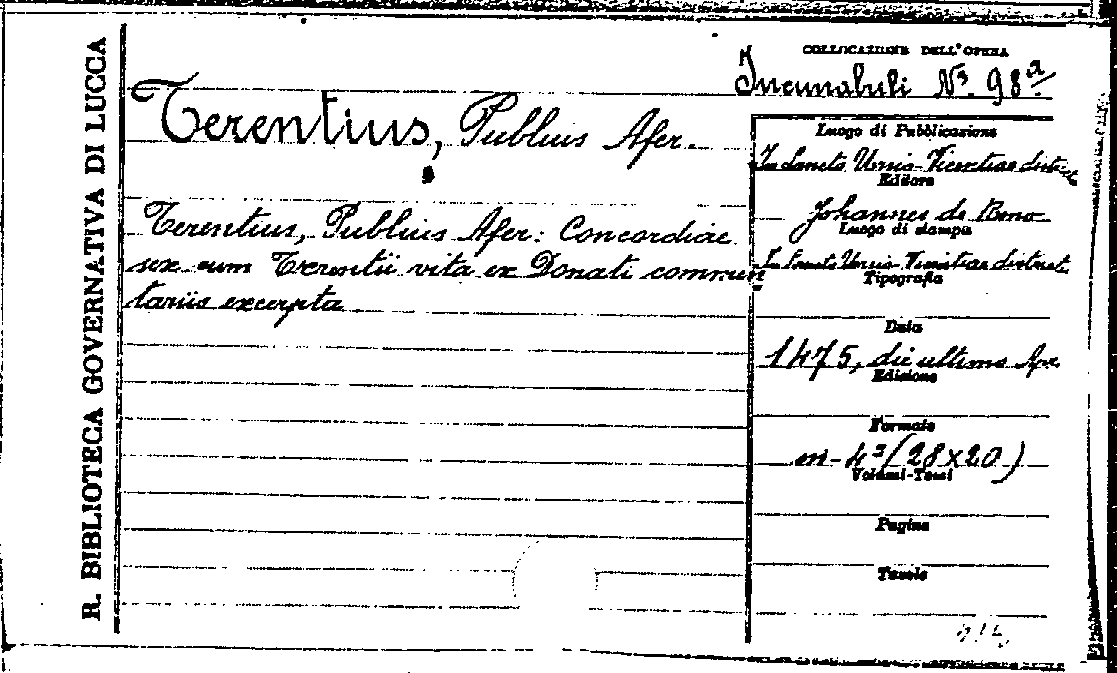 R. BIBLIOTECA GOVERNATIVA DI LUCCA
COLLOCAZIONE DELL'OPERA
Incunabuli Nº. 98a
Terentius, Publius Afer.
Terentius, Publius Afer: Concordiae
sex cum Terentii vita ex Donati commen
tariis excerpta
Luogo di Pubblicazione
In Sancto Ursio-Vicentiae district.
Editore
Johannes de Reno
Luogo di stampa
In Sancto Ursio-Vicentiae district.
Tipografia
Data
1475, die ultimo Apr.
Edizione
Formato
in-4º (28x20)
Volumi-Tomi
Pagine
Tavole